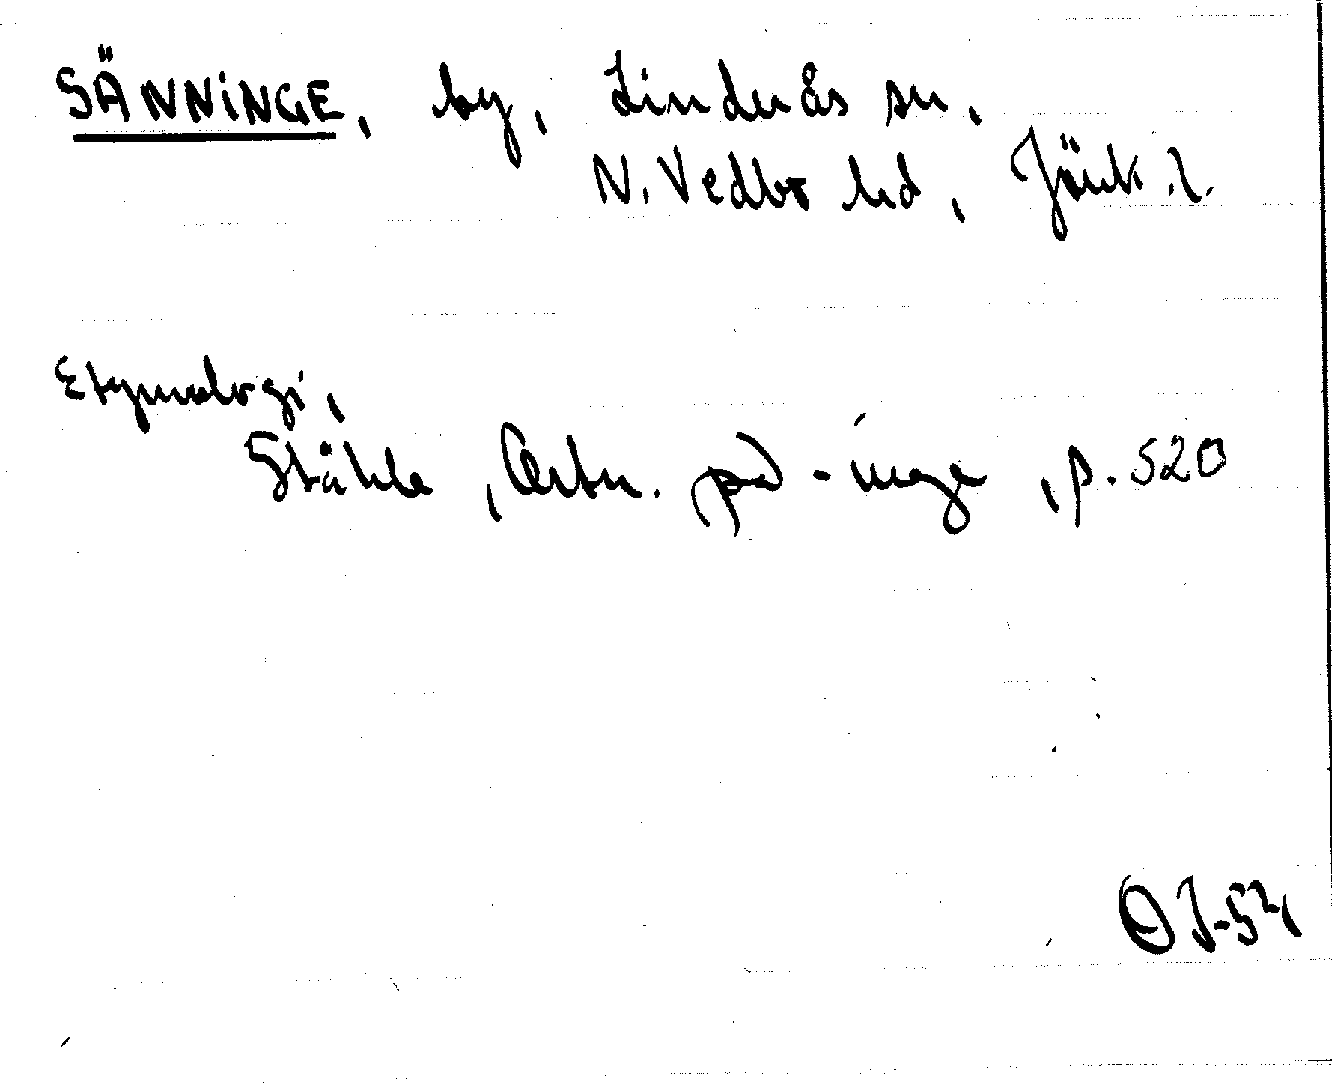 SÄNNINGE, by, Linderås sn.
N. Vedbo hd, Jönk. l.
Etymologi,
Ståhle, Ortn. på -inge, p. 520